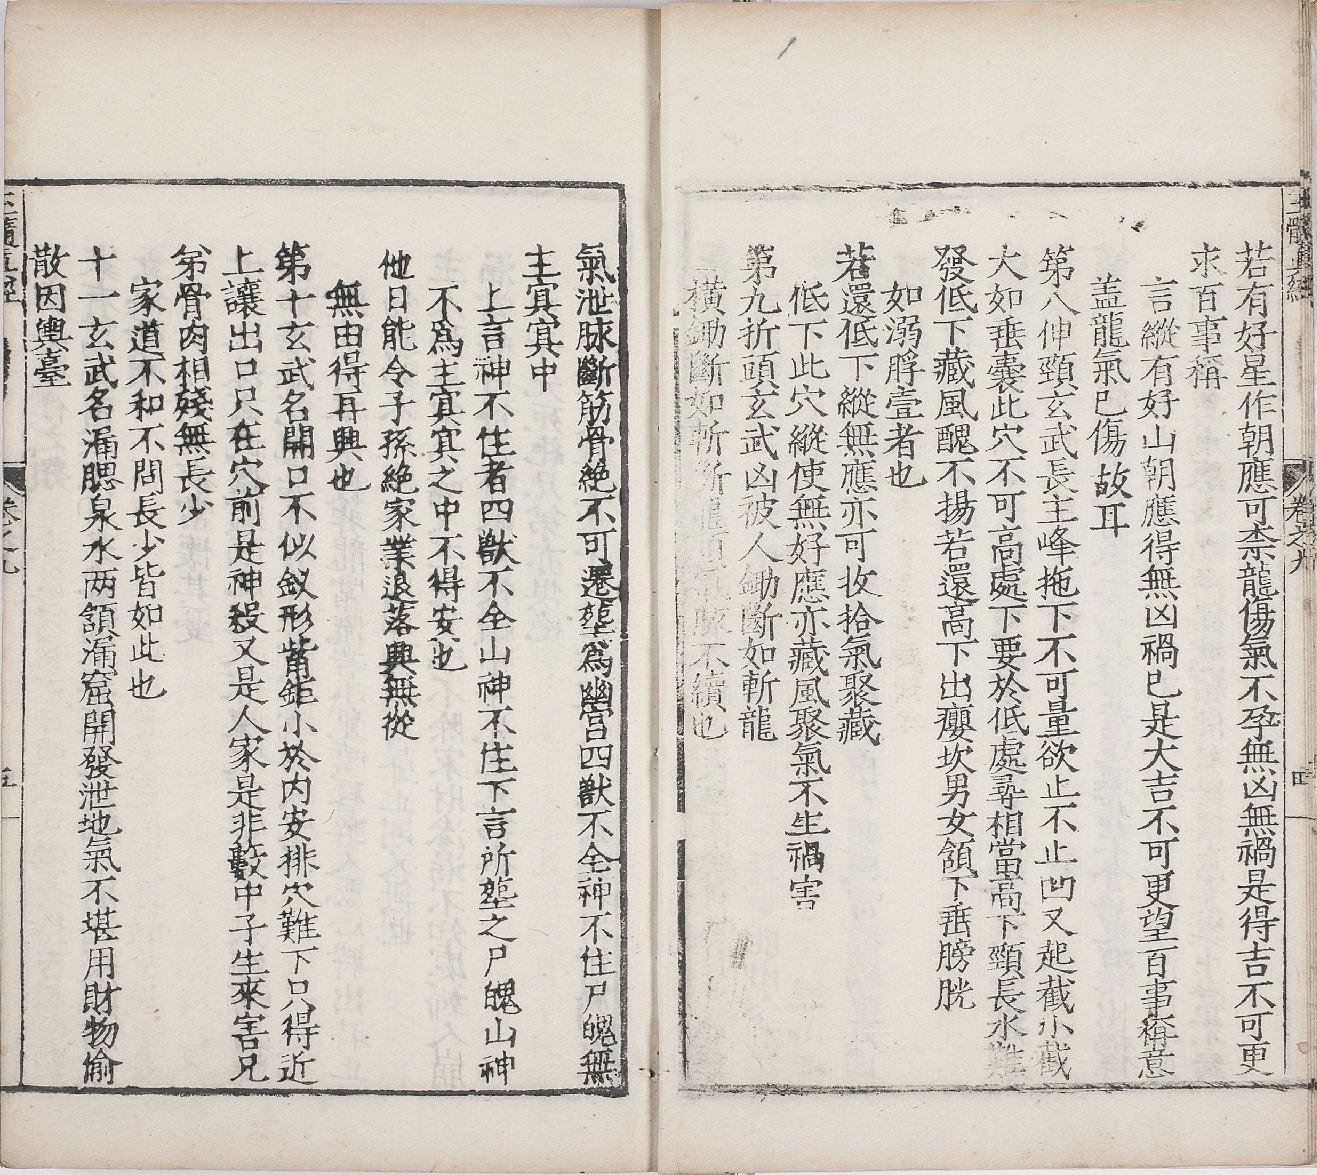 若有好星作朝應可柰龍傷氣不孕無凶無禍是得吉不可更
求百事稱
言縱有好山朝應得無凶禍已是大吉不可更望百事稱意
盖龍氣已傷故耳
第八伸頸玄武長主峰拖下不可量欲止不止凹又起截小截
大如垂囊此穴不可高處下要於低處尋相當高下頸長水難
發低下藏風醜不揚若還高下出癭坎男女頷下垂膀胱
如溺脬壹者也
若還低下縱無應亦可收拾氣聚藏
低下此穴縱使無好應亦藏風聚氣不生禍害
第九折頭玄武凶被人鋤斷如斬龍
橫鋤斷如斬斷龍項氣脉不續也
卷之九
四
氣泄脉斷筋骨絶不可遷塟爲幽宫四獸不全神不住尸魄無
主寘寘中
上言神不住者四獸不全山神不住下言所塟之尸魄山神
不爲主寘寘之中不得安也
他日能令子孫絶家業退落興無從
無由得再興也
第十玄武名開口不似釵形觜鉅小於内安排穴難下只得近
上讓出口只在穴前是神殺又是人家是非數中子生來害兄
弟骨肉相殘無長少
家道不和不問長少皆如此也
十一玄武名漏腮泉水两頷漏窟開發泄地氣不堪用財物偷
散因輿臺
卷之九
五